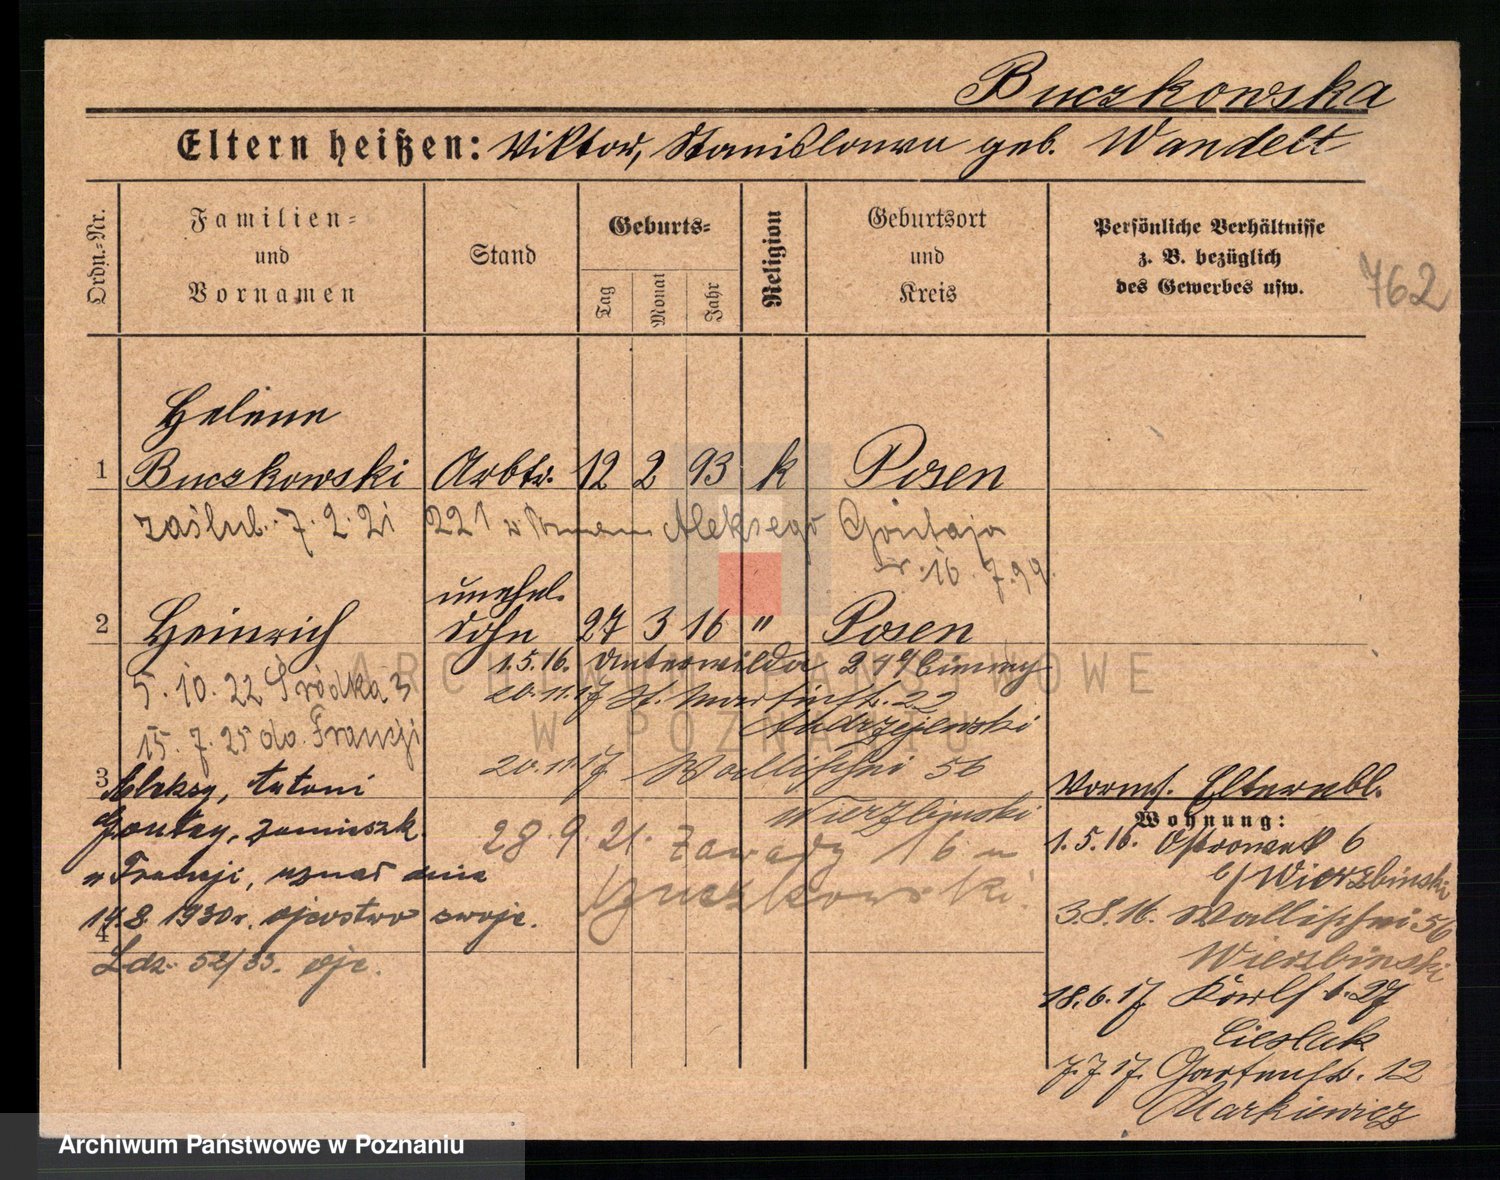 Buczkowska
Eltern heißen: Viktor, Stanislawa geb. Wandelt
Ordn.-Nr.
Familien-
und
Vornamen
Stand
Geburts-
Tag
Monat
Jahr
Religion
Geburtsort
und
Kreis
Persönliche Verhältnisse
z. B. bezüglich
des Gewerbes usw.
762
Helene
1 Buczkowski Arbtr. 12 2 93 k Posen
zaślub. 7.2.21 221 w Aleksego
r. 16.7.99.
unehel.
2 Heinrich Sohn 27 3 16 " Posen
1.5.16. Unterwilda
5.10.22 Śródka 3
20.11.17 St. Martinstr. 22
Andrzejewski
15.7.25 do Francji
20.11.17 Wallischei 56
Wierzbinski
3
Aleksy, Antoni
Goutay, zamieszk.
w Francji, uznał dnia
14.8.1930 r. ojcostwo swoje.
4
Ldz. 52/33. ojc.
28.9.21. Zawady 16
Buczkowski.
Vorms. Elternbl.
Wohnung:
1.5.16. Ostrowek 6
b/ Wierzbinski
3.8.16. Wallischei 56
Wierzbinski
18.6.17. 27
Cieslak
7.7.17. Gartenstr. 12
Markiewicz
ARCHIWUM PAŃSTWOWE
W POZNANIU
Archiwum Państwowe w Poznaniu